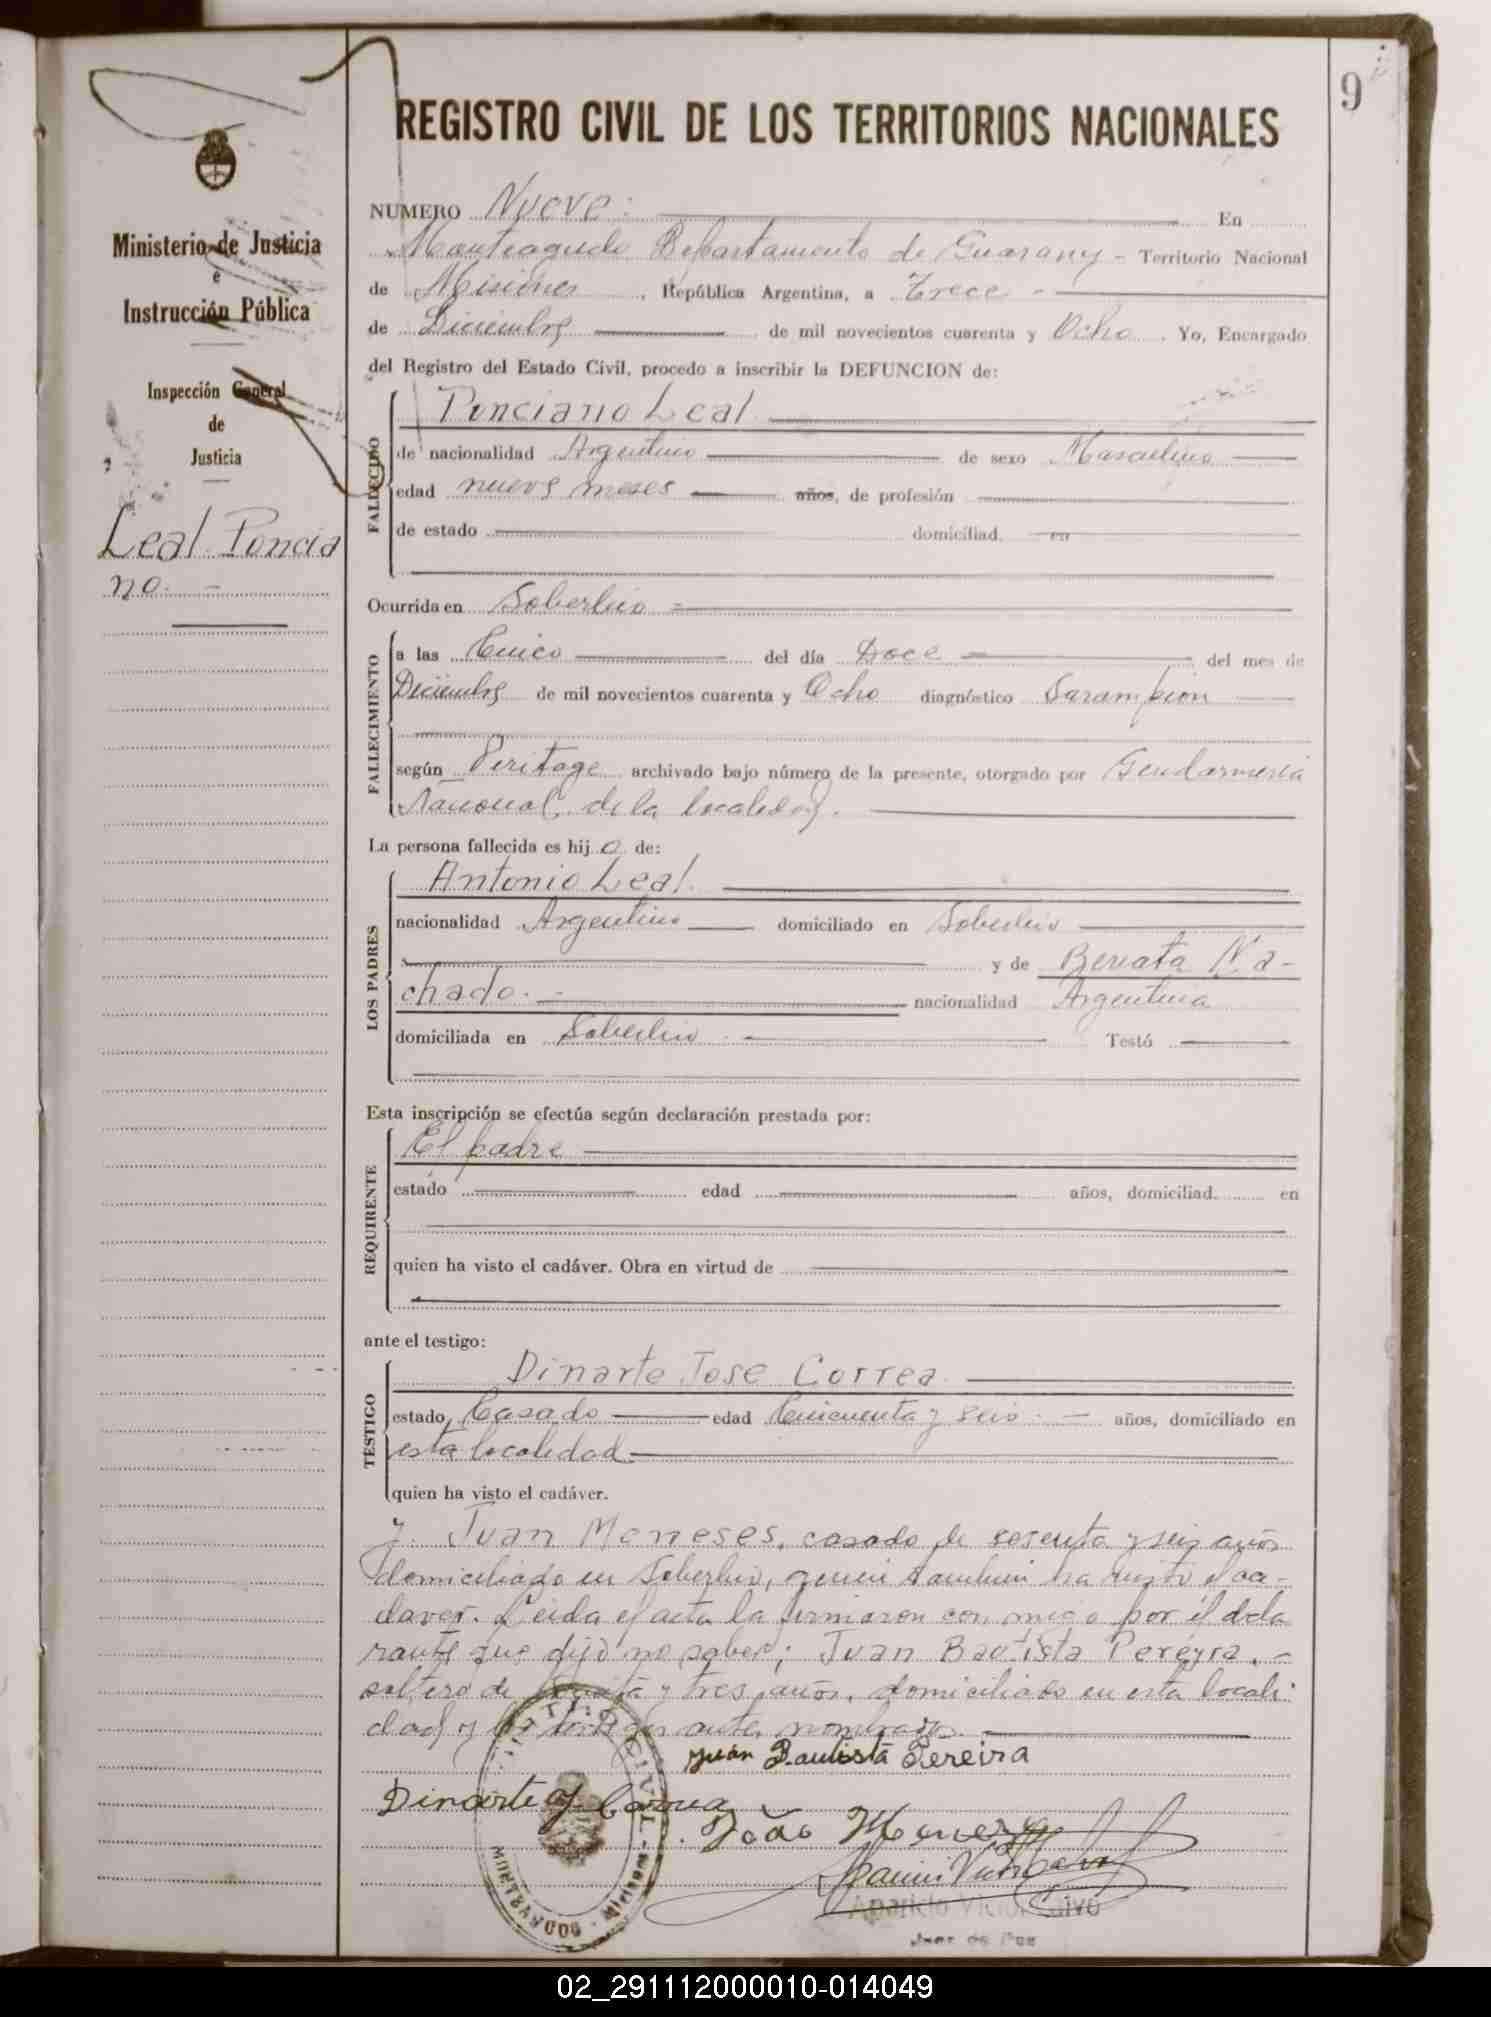 9
REGISTRO CIVIL DE LOS TERRITORIOS NACIONALES
Ministerio de Justicia
e
Instrucción Pública
Inspección General
de
Justicia
Leal Poncia
no.
NUMERO Nueve: En
Monteagudo Departamento de Guarany - Territorio Nacional
de Misiones, República Argentina, a Trece
de Diciembre de mil novecientos cuarenta y Ocho. Yo, Encargado
del Registro del Estado Civil, procedo a inscribir la DEFUNCION de:
FALLECIDO
Ponciano Leal
de nacionalidad Argentino de sexo Masculino
edad nueve meses años, de profesión
de estado domiciliad en
Ocurrida en Soberbio
FALLECIMIENTO
a las Cinco del día Doce del mes de
Diciembre de mil novecientos cuarenta y Ocho diagnóstico Sarampion
según Peritage archivado bajo número de la presente, otorgado por Gendarmeria
Nacional de la localidad.
La persona fallecida es hijo de:
LOS PADRES
Antonio Leal.
nacionalidad Argentino domiciliado en Soberbio
y de Renata Ma-
chado. nacionalidad Argentina
domiciliada en Soberbio Testó
Esta inscripción se efectúa según declaración prestada por:
REQUIRENTE
El padre
estado edad años, domiciliad en
quien ha visto el cadáver. Obra en virtud de
ante el testigo:
TESTIGO
Dinarte Jose Correa
estado Casado edad Cincuenta y seis años, domiciliado en
esta localidad
quien ha visto el cadáver.
y. Juan Meneses, casado de sesenta y seis años
domiciliado en Soberbio, quien tambien ha visto el ca-
daver. Leida el acta la firmaron con migo por el decla
rante que dijo no saber; Juan Bautista Pereyra. -
soltero de y tres años, domiciliado en esta locali
dad y los testigos antes nombrados.
Juán Bautista Pereira
Dinarte J Correa
João Meneses
REGISTRO CIVIL
MONTEAGUDO - Misiones
Aparicio Victor Calvo
Juez de Paz
02_291112000010-014049